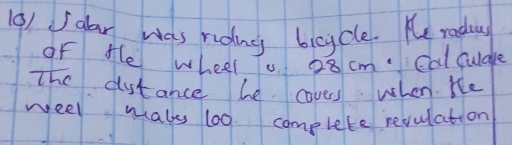 10) Jabar was riding bicycle. The radius
of the wheel is 28 cm. Calculate
The distance he covers when the
weel makes 100 complete revulation